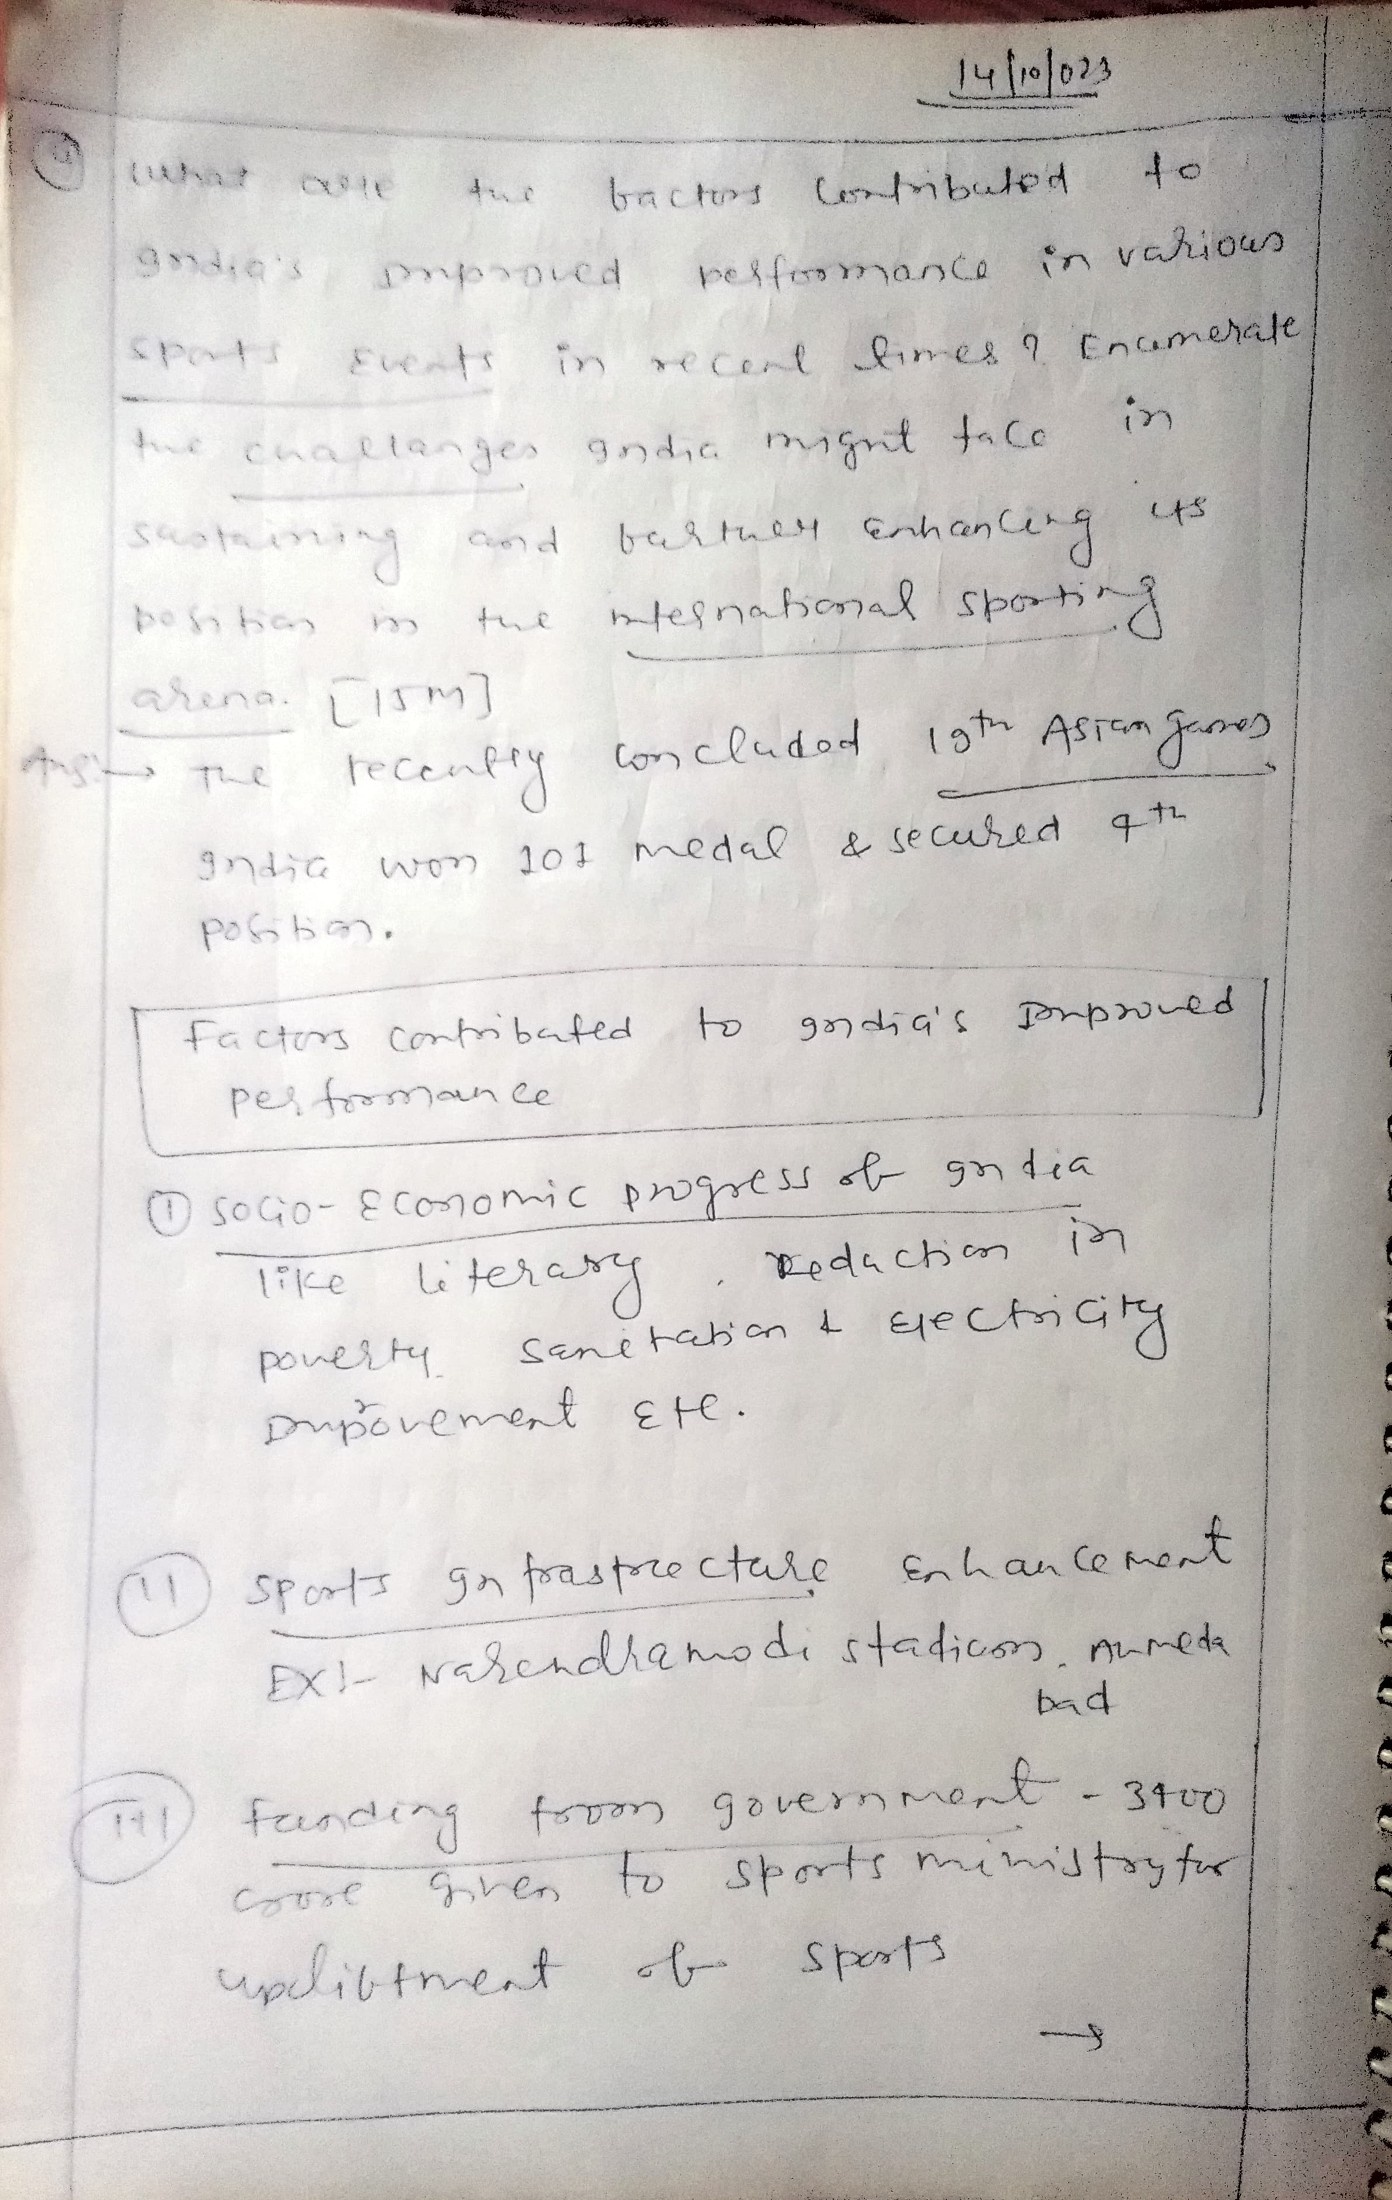 14/10/023
④ What are the factors contributed to
India's improved performance in various
sports events in recent times? Enumerate
the challanges India might face in
sustaining and further enhancing its
position in the international sporting
arena. [15M]
Ans:→ The recently concluded 19th Asian games
India won 101 medal & secured 4th
position.
Factors contributed to India's Improved
performance
① Socio-Economic progress of India
like literary, Reduction in
poverty sanitation & Electricity
Improvement Etc.
(ii) Sports Infrastructure Enhancement
EX:- Narendramodi stadium, Ahmeda
bad
(iii) Funding from government - 3400
crore given to sports ministry for
upliftment of sports
→